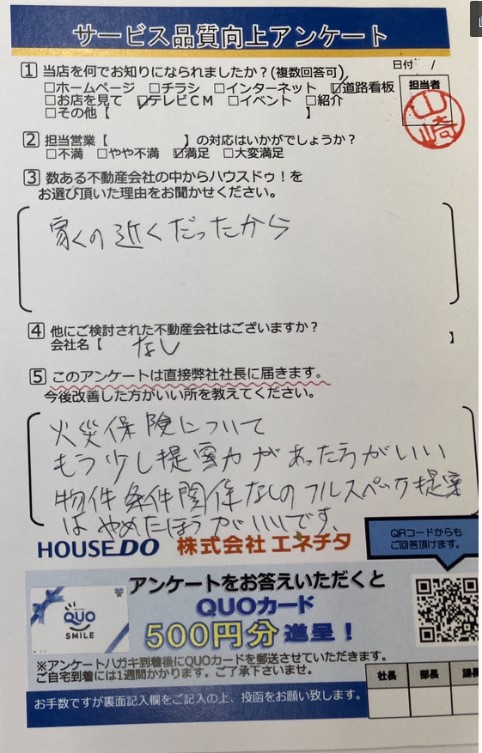 サービス品質向上アンケート
日付 /
1 当店を何でお知りになられましたか？(複数回答可)
担当者
□ホームページ □チラシ □インターネット ☑道路看板
□お店を見て ☑テレビCM □イベント □紹介
□その他【 】
山崎
2 担当営業【 】の対応はいかがでしょうか？
□不満 □やや不満 ☑満足 □大変満足
3 数ある不動産会社の中からハウスドゥ！を
お選び頂いた理由をお聞かせください。
家の近くだったから
4 他にご検討された不動産会社はございますか？
会社名【 なし 】
5 このアンケートは直接弊社社長に届きます。
今後改善した方がいい所を教えてください。
火災保険について
もう少し提案力があった方がいい
物件条件関係なしのフルスペック提案
はやめたほうがいいです。
HOUSEDO 株式会社 エネチタ
QRコードからも
ご回答頂けます。
アンケートをお答えいただくと
QUOカード
500円分 進呈！
QUO
SMILE
※アンケートハガキ到着後にQUOカードを郵送させていただきます。
ご自宅到着には1週間かかります。ご了承下さいませ。
社長 部長
お手数ですが裏面記入欄をご記入の上、投函をお願い致します。